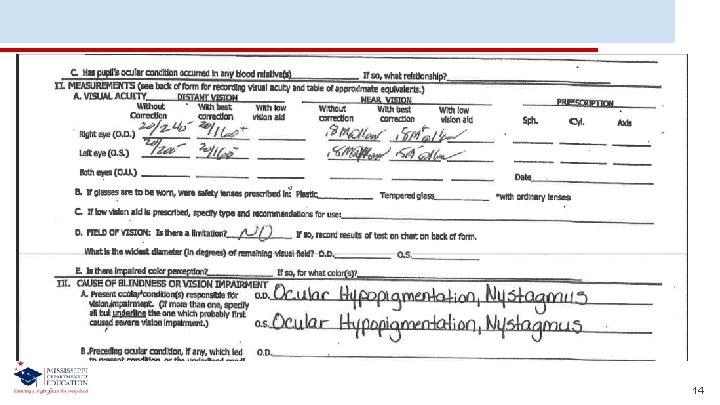 C. Has pupil's ocular condition occurred in any blood relative(s) If so, what relationship?
II. MEASUREMENTS (see back of form for recording visual acuity and table of approximate equivalents.)
A. VISUAL ACUITY DISTANT VISION NEAR VISION PRESCRIPTION
Without correction With best correction With low vision aid Without correction With best correction With low vision aid Sph. Cyl. Axis
Right eye (O.D.) 20/240 20/160+
Left eye (O.S.) 20/200 20/160
Both eyes (O.U.) Date
B. If glasses are to be worn, were safety lenses prescribed in: Plastic Tempered glass *with ordinary lenses
C. If low vision aid is prescribed, specify type and recommendations for use:
D. FIELD OF VISION: Is there a limitation? NO If so, record results of test on chart on back of form.
What is the widest diameter (in degrees) of remaining visual field? O.D. O.S.
E. Is there impaired color perception? If so, for what color(s)?
III. CAUSE OF BLINDNESS OR VISION IMPAIRMENT
A. Present ocular condition(s) responsible for O.D. Ocular Hypopigmentation, Nystagmus
vision impairment. (If more than one, specify
all but underline the one which probably first
caused severe vision impairment.) O.S. Ocular Hypopigmentation, Nystagmus
B. Preceding ocular condition, if any, which led O.D.
MISSISSIPPI
DEPARTMENT OF
EDUCATION
14